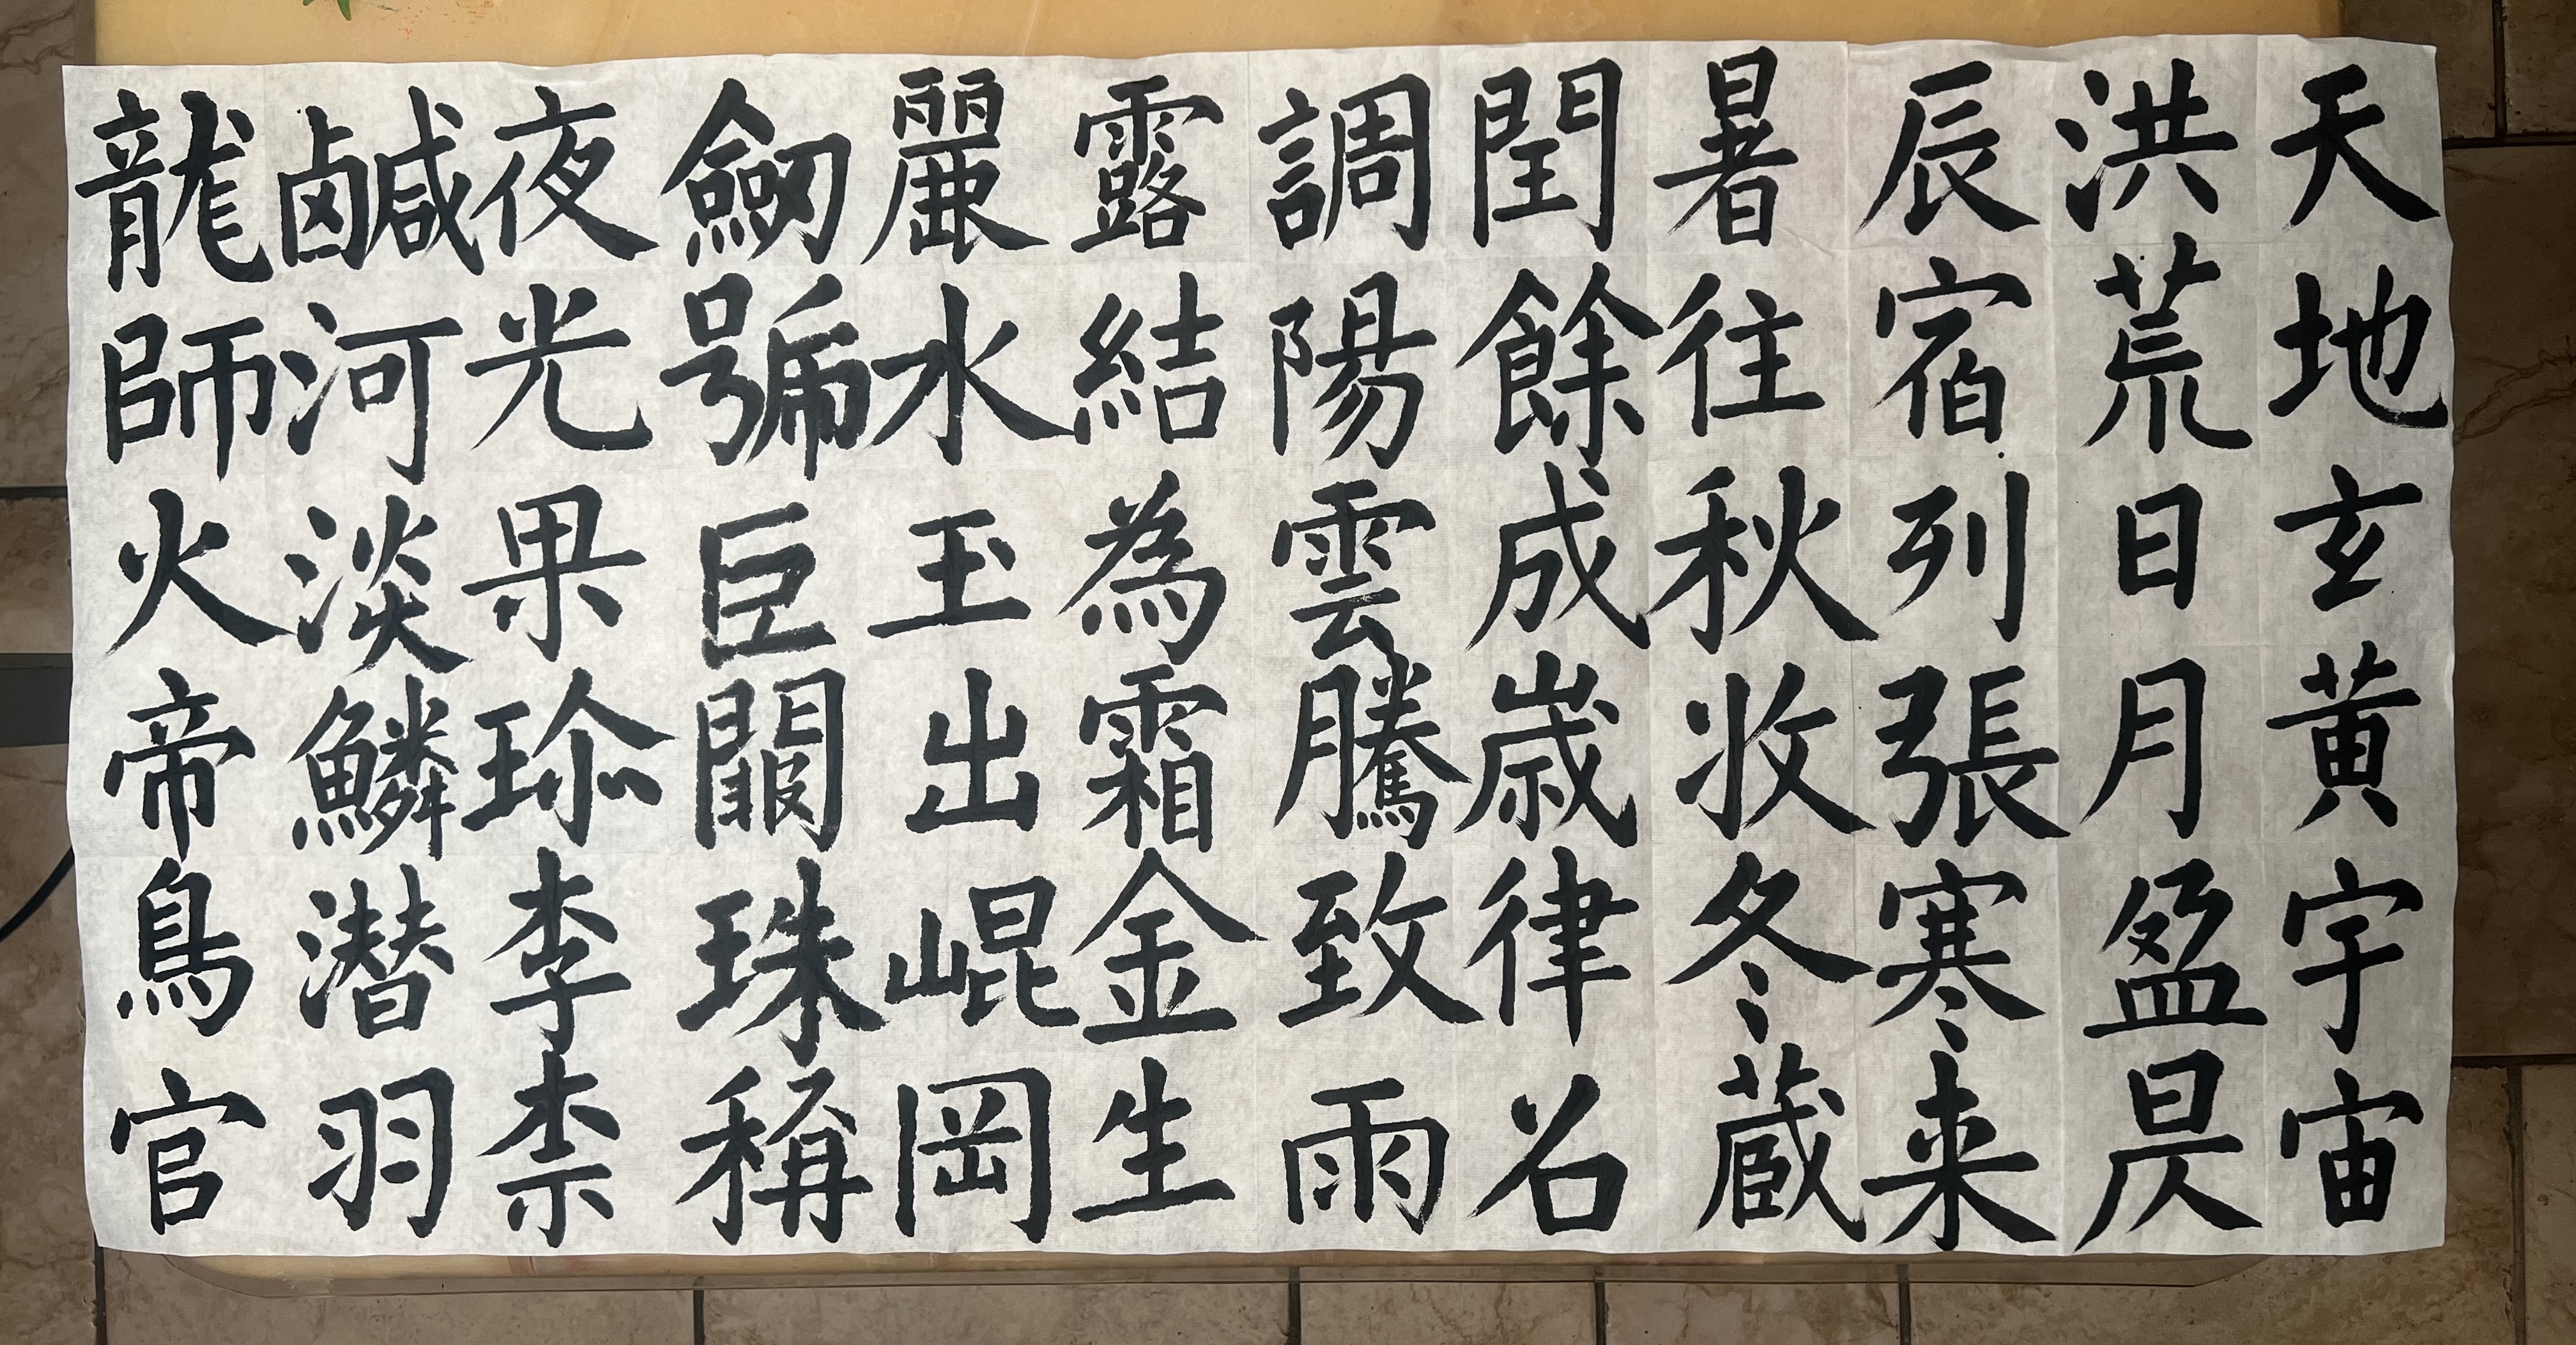 天地玄黄宇宙
洪荒日月盈昃
辰宿列張寒来
暑往秋收冬蔵
閏餘成嵗律名
調陽雲騰致雨
露結為霜金生
麗水玉出崐岡
劒號巨闕珠稱
夜光果珎李柰
鹹河淡鱗潜羽
龍師火帝鳥官